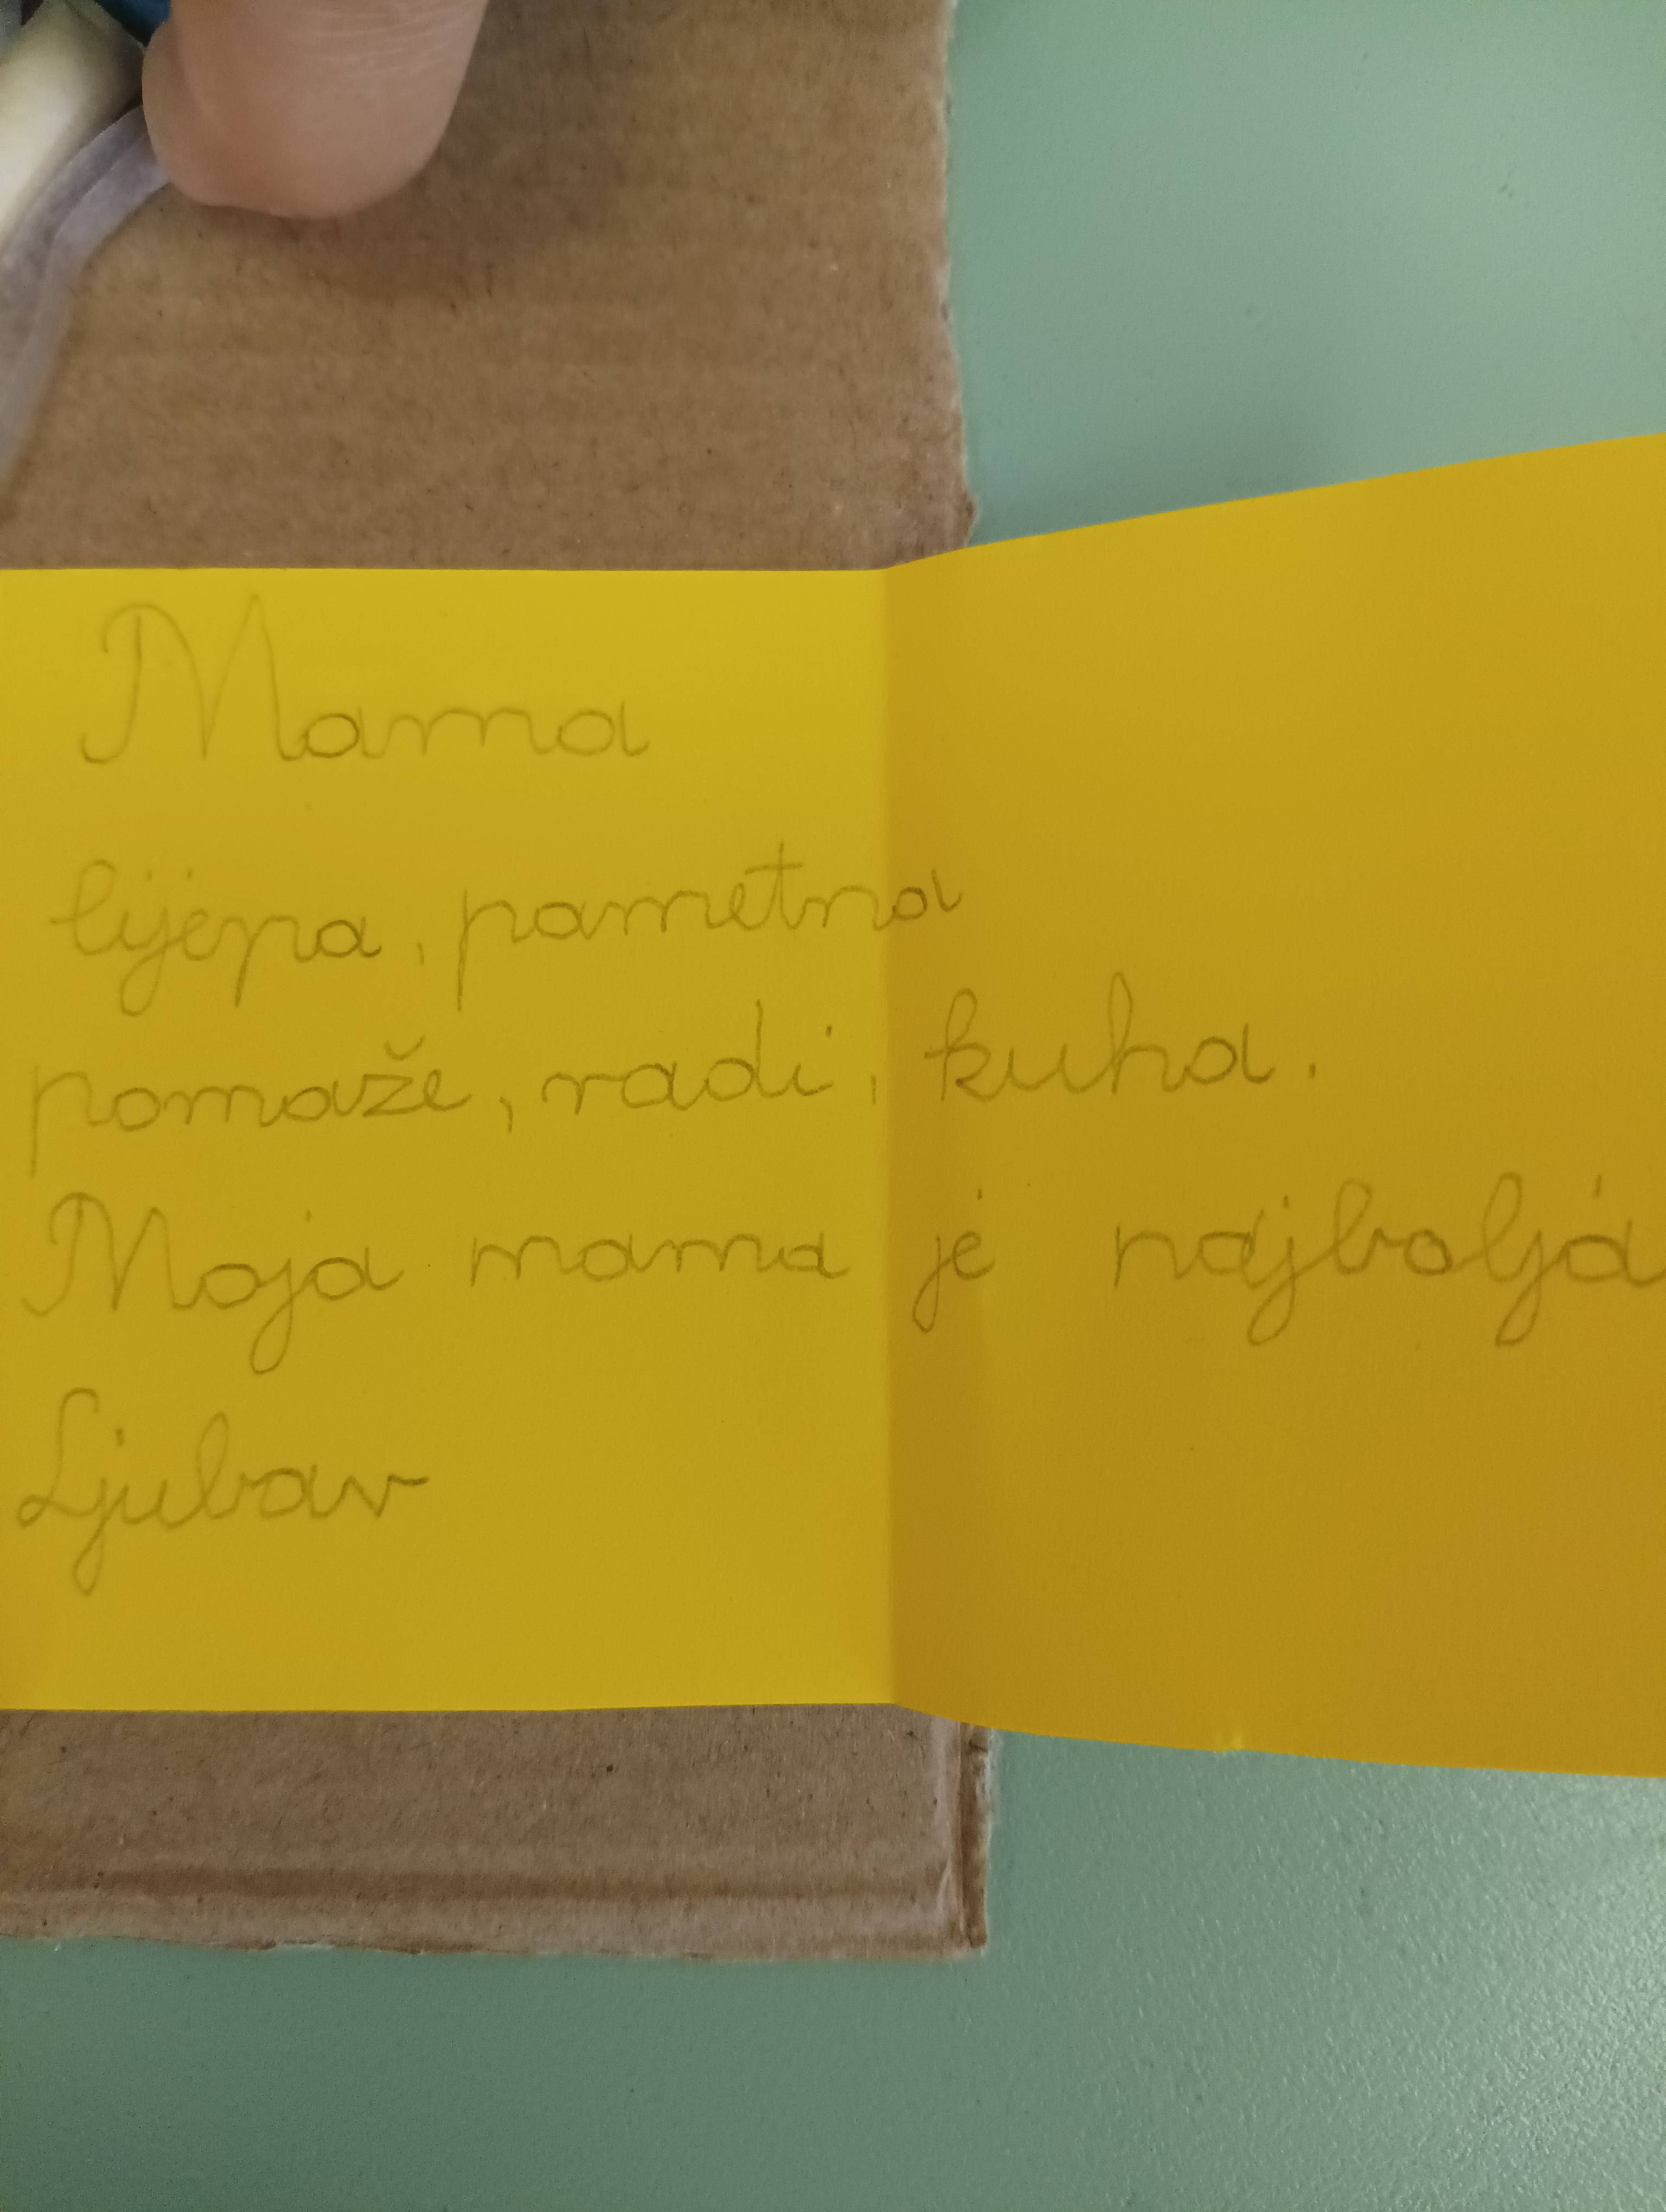 Mama
lijepa, pametna
pomaže, radi, kuha.
Moja mama je najbolja
Ljubav